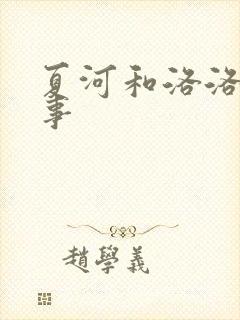 夏河和洛洛
事
趙學義